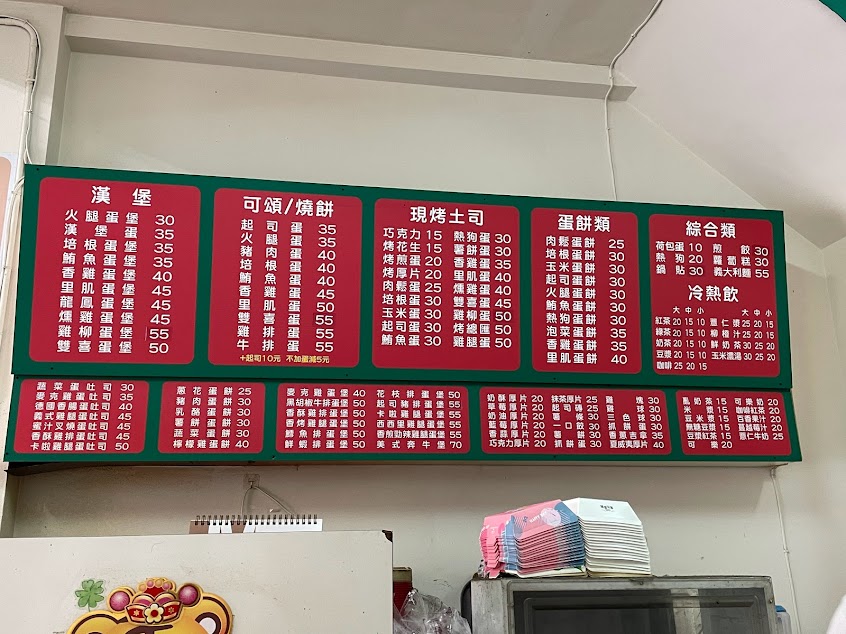 漢堡
火腿蛋堡 30
漢堡蛋 35
培根蛋堡 35
鮪魚蛋堡 35
香雞蛋堡 40
里肌蛋堡 45
龍鳳蛋堡 45
燻雞蛋堡 45
雞柳蛋堡 55
雙喜蛋堡 50
可頌/燒餅
起司蛋 35
火腿蛋 35
豬肉蛋 40
培根蛋 40
鮪魚蛋 40
香雞蛋 45
里肌蛋 50
雙喜蛋 55
雞排蛋 55
牛排蛋 55
+起司10元 不加蛋減5元
現烤土司
巧克力 15 熱狗蛋 30
烤花生 15 薯餅蛋 30
烤煎蛋 20 香雞蛋 35
烤厚片 20 里肌蛋 40
肉鬆蛋 25 燻雞蛋 40
培根蛋 30 雙喜蛋 45
玉米蛋 30 雞柳蛋 50
起司蛋 30 烤總匯 50
鮪魚蛋 30 雞腿蛋 50
蛋餅類
肉鬆蛋餅 25
培根蛋餅 30
玉米蛋餅 30
起司蛋餅 30
火腿蛋餅 30
鮪魚蛋餅 30
熱狗蛋餅 30
泡菜蛋餅 35
香雞蛋餅 35
里肌蛋餅 40
綜合類
荷包蛋 10 煎餃 30
熱狗 20 蘿蔔糕 30
鍋貼 30 義大利麵 55
冷熱飲
大中小 大中小
紅茶 20 15 10 薏仁漿 25 20 15
綠茶 20 15 10 柳橙汁 25 20 15
奶茶 20 15 10 鮮奶茶 30 25 20
豆漿 20 15 10 玉米濃湯 30 25 20
咖啡 25 20 15
蔬菜蛋吐司 30
麥克雞蛋吐司 35
德國香腸蛋吐司 40
義式雞腿蛋吐司 45
蜜汁叉燒蛋吐司 45
香酥雞排蛋吐司 45
卡啦雞腿蛋吐司 50
蔥花蛋餅 25
豬肉蛋餅 30
乳酪蛋餅 30
薯餅蛋餅 30
蔬菜蛋餅 30
檸檬雞蛋餅 40
麥克雞蛋堡 40 花枝排蛋堡 50
黑胡椒牛排蛋堡 50 起司豬排蛋堡 55
香酥雞排蛋堡 50 卡啦雞腿蛋堡 55
香烤雞腿蛋堡 50 西西里雞腿蛋堡 55
鱈魚排蛋堡 50 香煎勁辣雞腿蛋堡 55
鮮蝦排蛋堡 50 美式奔牛堡 70
奶酥厚片 20 抹茶厚片 20 雞塊 30
草莓厚片 20 起司磚 25 雞球 30
奶油厚片 20 薯條 30 三色球 30
藍莓厚片 20 一口餃 30 抓餅蛋 30
香蒜厚片 20 薯餅 30 香蔥吉拿 35
巧克力厚片 20 抓餅蛋 30 夏威夷厚片 40
鳳奶茶 15 可樂奶 20
米漿 15 咖啡紅茶 20
豆米漿 15 百香果汁 20
無糖豆漿 15 蔓越莓汁 20
豆漿紅茶 15 薏仁牛奶 25
可樂 20